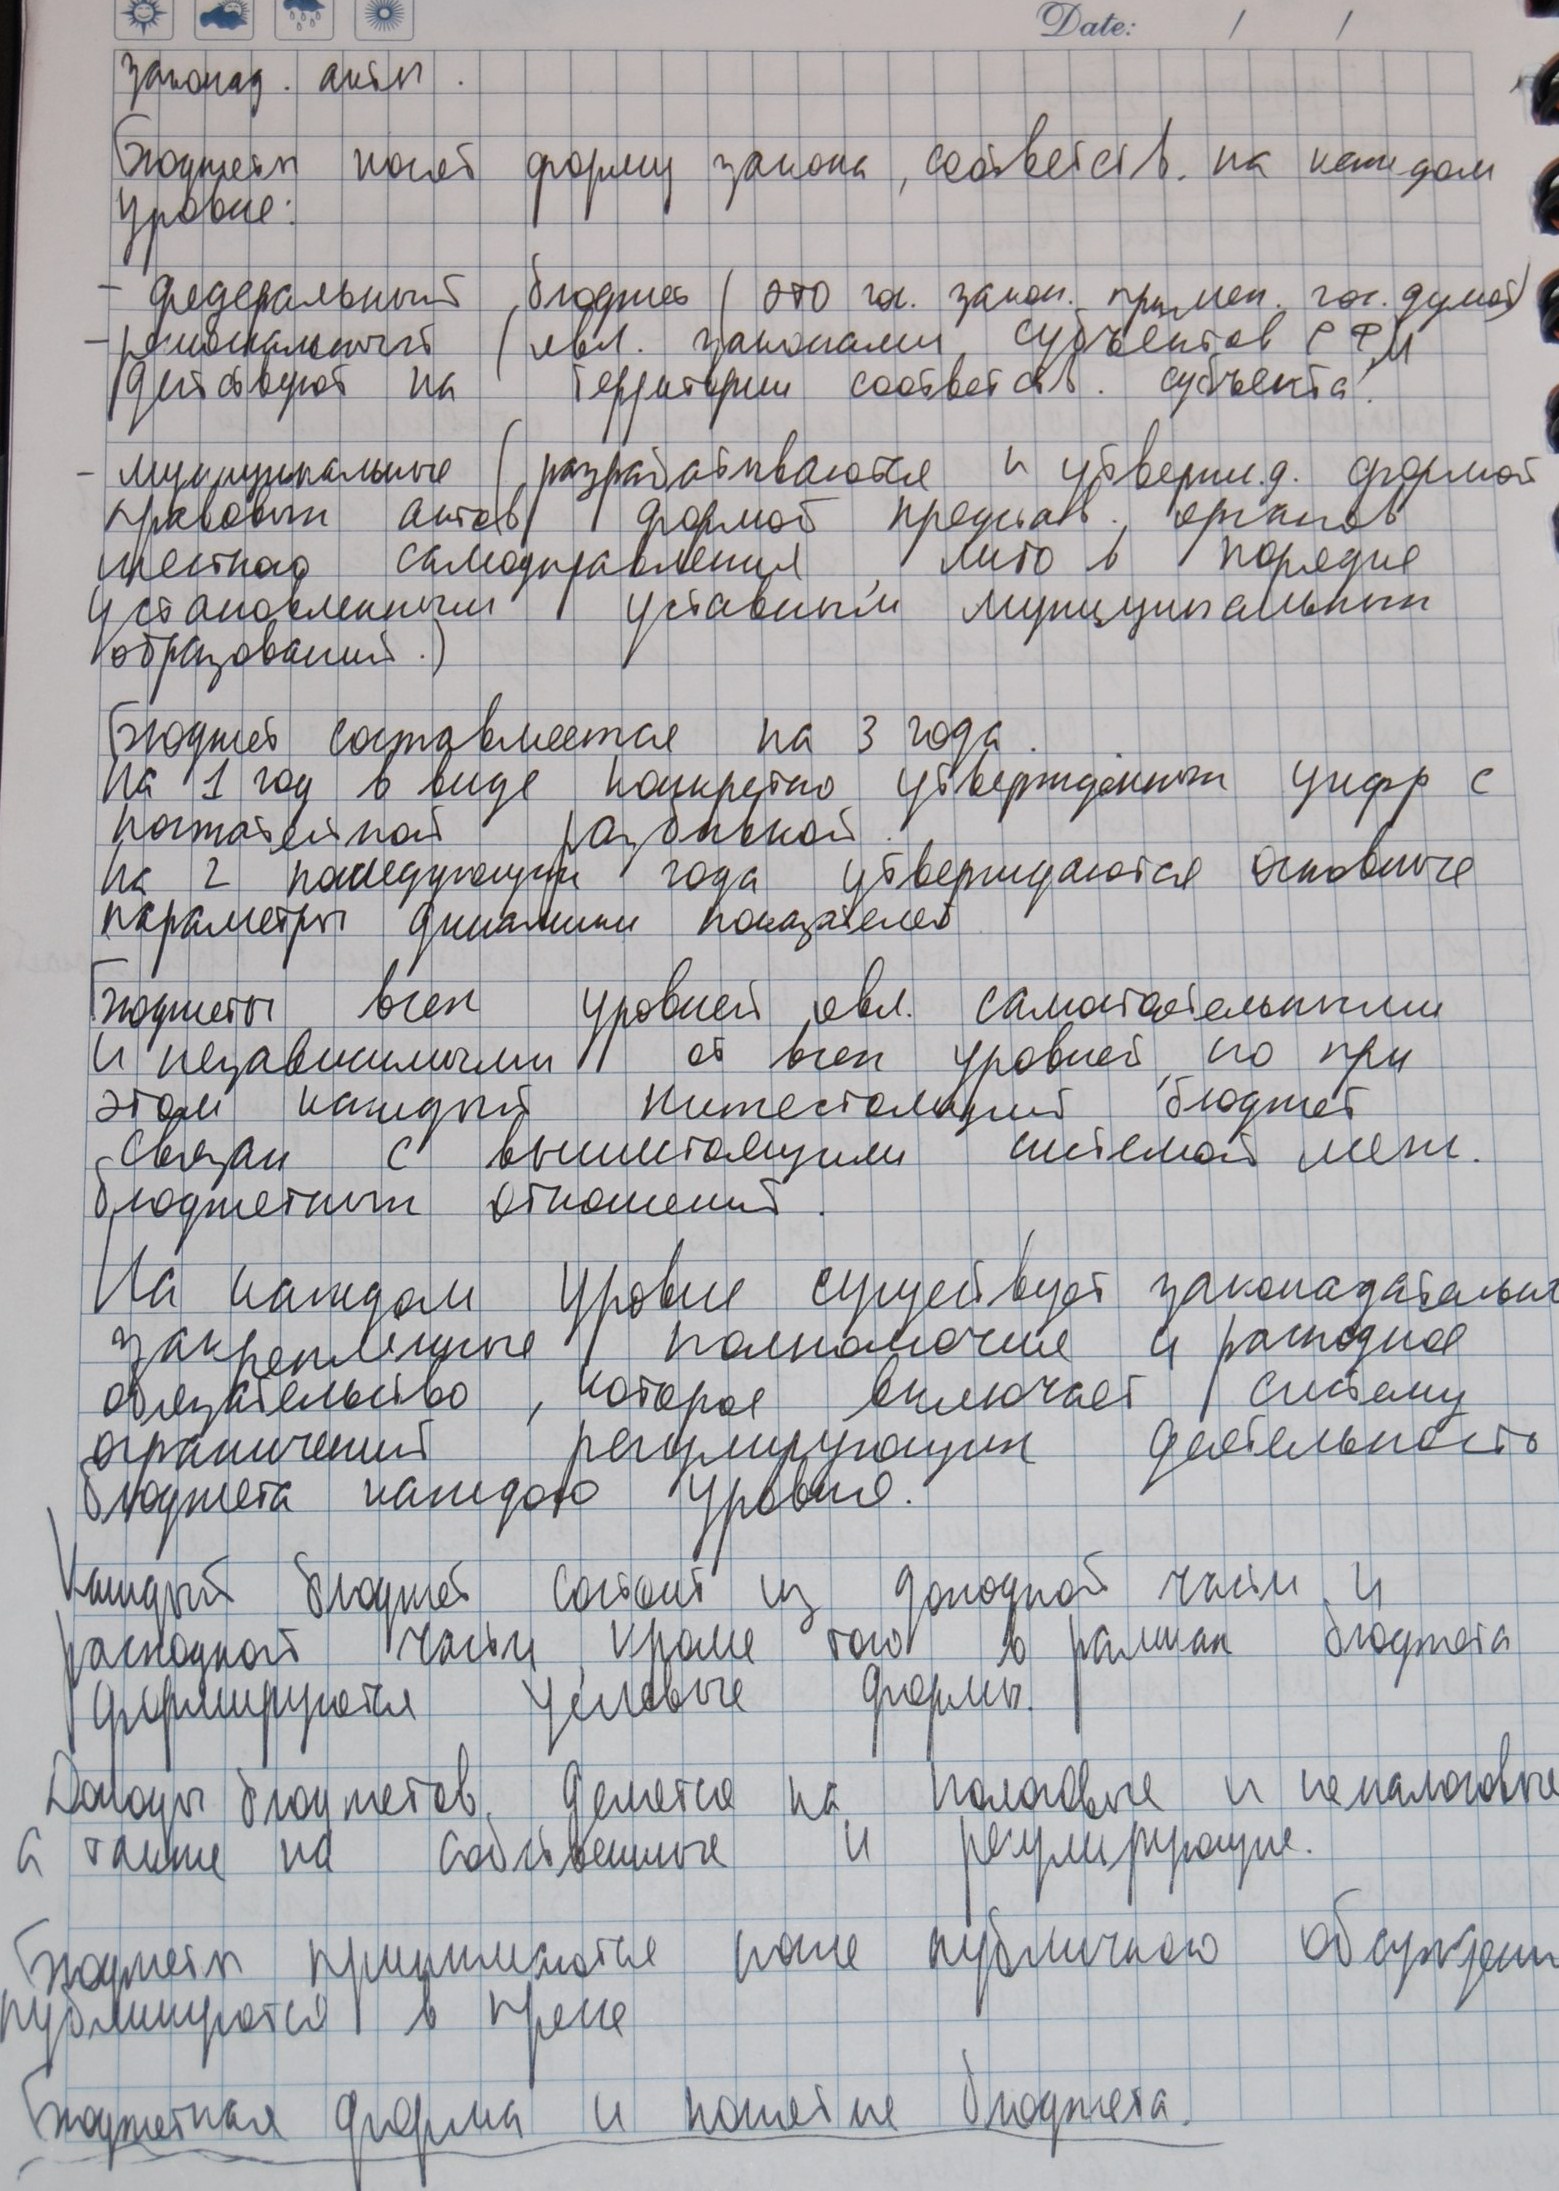 Date: / /
законод. акты.
Бюджеты носят форму закона, соответств. на каждом
уровне:
- федеральный бюджет (это гос. закон. примен. гос. думой)
- региональный (явл. законами субъектов РФ и
действуют на территории соответств. субъекта.
- муниципальные (разрабатываются и утвержд. формой
правовых актов формой представ. органов
местного самоуправления, либо в порядке
установленным уставным муниципальных
образований.)
Бюджет составляется на 3 года.
На 1 год в виде конкретно утверждённых цифр с
постатейной разбивкой.
На 2 последующих года утверждаются основные
параметры динамики показателей
Бюджеты всех уровней явл. самостоятельными
и независимыми от всех уровней, но при
этом каждый нижестоящий бюджет
связан с вышестоящими системой меж.
бюджетных отношений.
На каждом уровне существует законодательно
закрепленные полномочия и расходное
обязательство, которое включает систему
ограничений регулирующих деятельность
бюджета каждого уровня.
Каждый бюджет состоит из доходной части и
расходной части, кроме того в рамках бюджета
формируются целевые формы.
Доходы бюджетов делятся на налоговые и неналоговые
а также на собственные и регулирующие.
Бюджеты принимаются после публичного обсужден
публикуются в прессе
Бюджетная форма и понятие бюджета.